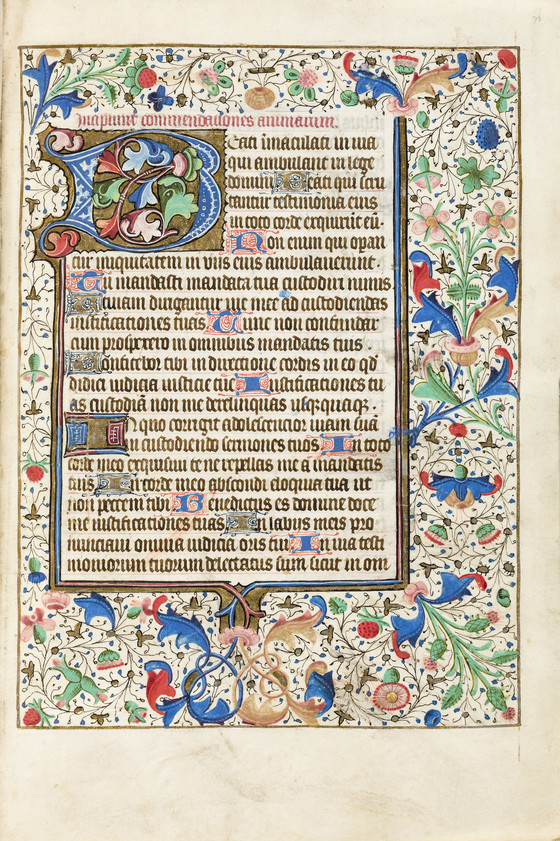 Incipiunt commendationes animarum.
Beati immaculati in uia
qui ambulant in lege
domini Beati qui scru
tantur testimonia eius
in toto corde exquirunt eu̅.
Non enim qui operan
tur iniquitatem in uiis eius ambulauerunt.
Tu mandasti mandata tua custodiri nimis
Utinam dirigantur uie mee ad custodiendas
iustificationes tuas Tunc non confundar
cum prospexero in omnibus mandatis tuis.
Confitebor tibi in directione cordis in eo qd̓
didici iudicia iusticie tue Iustificationes tu
as custodia̅ non me derelinquas usq̄quaq̄.
In quo corrigit adolescentior uiam sua̅
in custodiendo sermones tuos In toto
corde meo exquisiui te ne repellas me a mandatis
tuis In corde meo abscondi eloquia tua ut
non peccem tibi Benedictus es domine doce
me iustificationes tuas In labijs meis pro
nunciaui omnia iudicia oris tui In uia testi
moniorum tuorum delectatus sum sicut in om